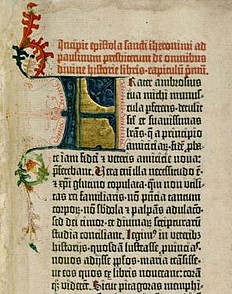 Incipit epistola sancti iheronimi ad
paulinum presbiterum de omnibus
divine historie libris. capitulū pmū.
Frater ambrosius
tua michi munus-
cula pferens. detulit
sil' et suavissimas
lrās. q̄ a principio
amiciciarū. fidē pba-
te iam fidei et veteris amicicie nova
pferebant. Vera eni illa necessitudo ē.
et xpi glutino copulata. qm̄ non utili-
tas rei familiaris. nō pn̄cia tantum
corporū. nō sbdola et palpās adulacō.
sed dei timor. et divinarū scripturarū
studia conciliant. Legim⁹ in veteribz
historijs. quosdā lustrasse pvincias.
novos adijsse pplos. maria transisse.
ut eos quos ex libris noverant: coram
q̄ viderent. Sicut pitagoras memphi-